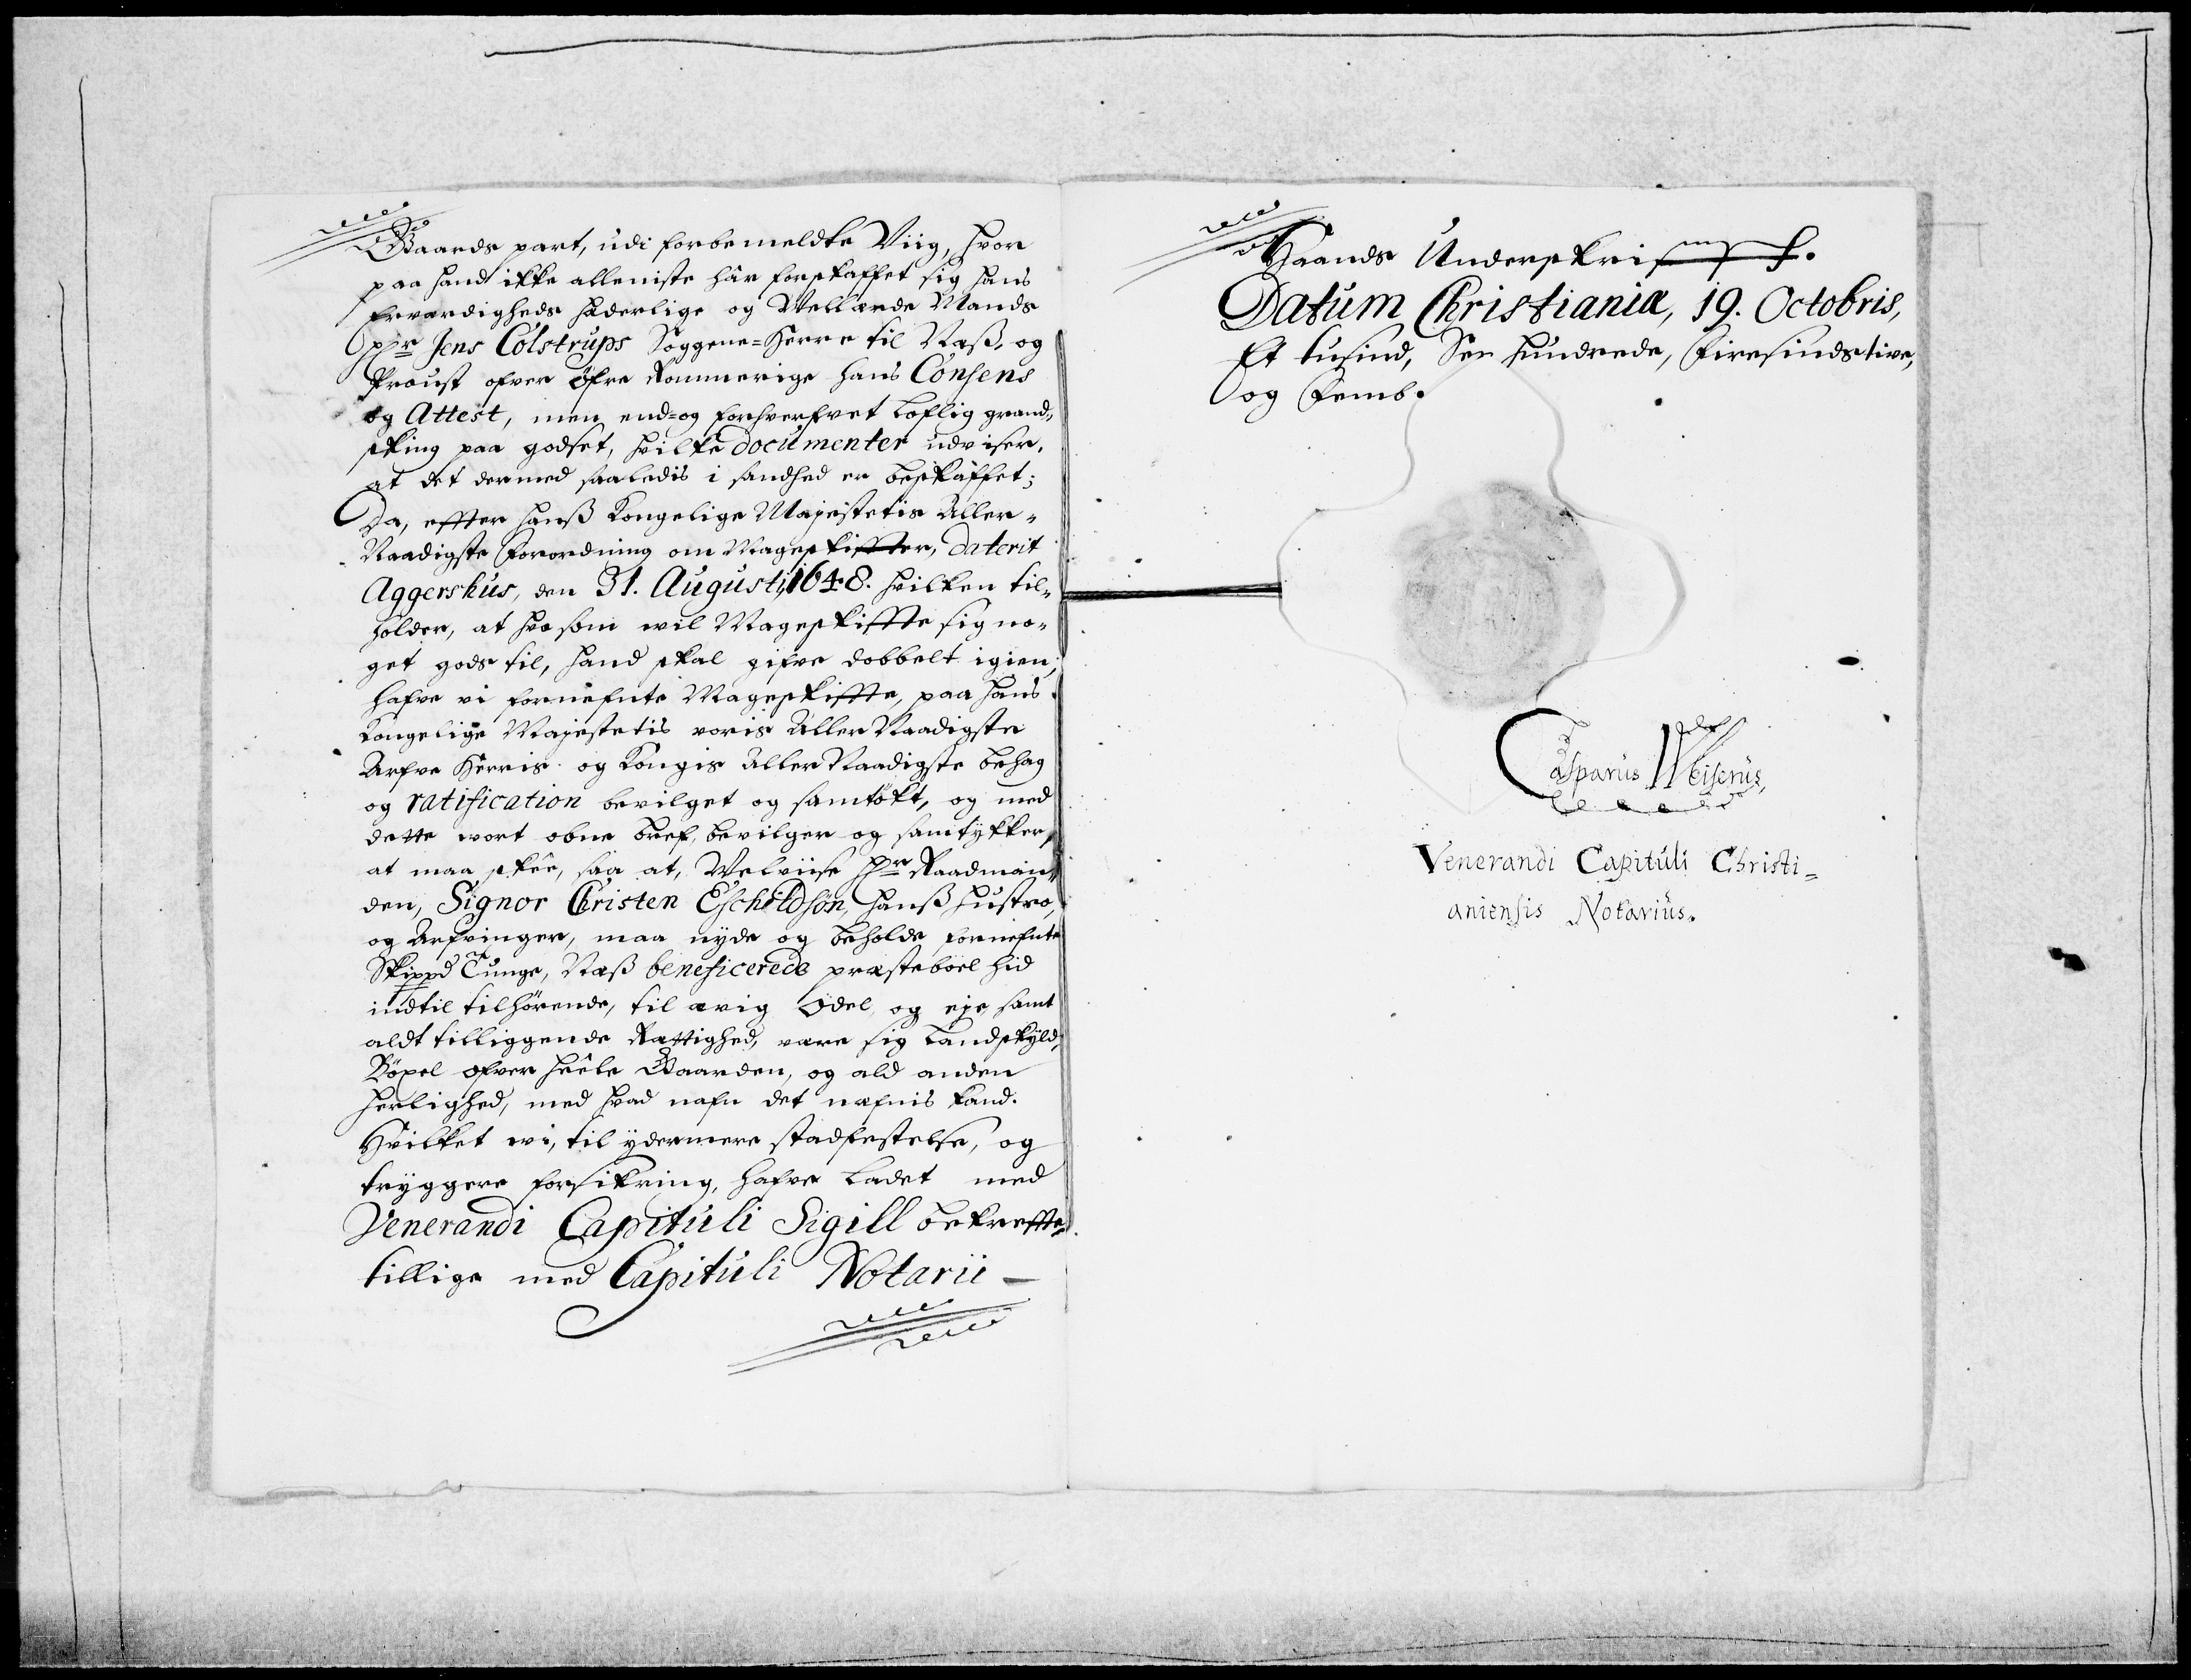 Gaards part, udi forbemeldte Viig, hvor
paa hand ikke alleniste hâr forskaffet sig hans
Erværdigheds hæderlige og Vellærde Mands
Hr Jens Colstrups Soggene=Herre til Næß, og
Proust ofver Øfre Rommerige hans Consens
og Attest, men end=og forhverfvet loflig grand„
skning paa godset, hvilke documenter udviser,
at det dermed saaledis i sandhed er beskaffet;
Da, effter hanß Kongelige Majestetis Aller„
Naadigste Forordning om Mageskiffter, daterit
Aggershus, den 31. Augusti, 1648. hvilken til„
holder, at hvo som vil Mageskiffte sig no„
get gods til, hand skal gifve dobbelt igien;
hafve vi fornefnte Mageskiffte, paa hans
Kongelige Majestetis voris Aller Naadigste
Arfve Herris og Kongis Aller Naadigste behag
og ratification bevilget og samtökt, og med
dette wort obne bref, bevilger og samtykker,
at maa skêe, saa at, Velviise Hr Raadman„
den, Signor Christen Eschildsøn, hanß hustro,
og Arfvinger, maa nyde og beholde fornefnte
Skippd Tunge, Næß beneficerede præsteboel hid
indtil tilhörende, til ævig Odel, og eje, samt
aldt tilliggende Rættighed, være sig Landskyld,
Böxel ofver hêele Gaarden, og ald anden
herlighed, med hvad nafn det næfnis kand.
Hvilket wi, til ydermere stadfestelse, og
tryggere forsikring, hafve ladet med
Venerandi Capituli Sigill bekreffte,
tillige med Capituli Notarii
Haands Underskrift.
Datum Christianiæ, 19. Octobris,
Et tusind, Sex hundrede, Firesindstive,
og Femb.
Casparus Wbiserus,
Venerandi Capituli Christi=
aniensis Notarius.